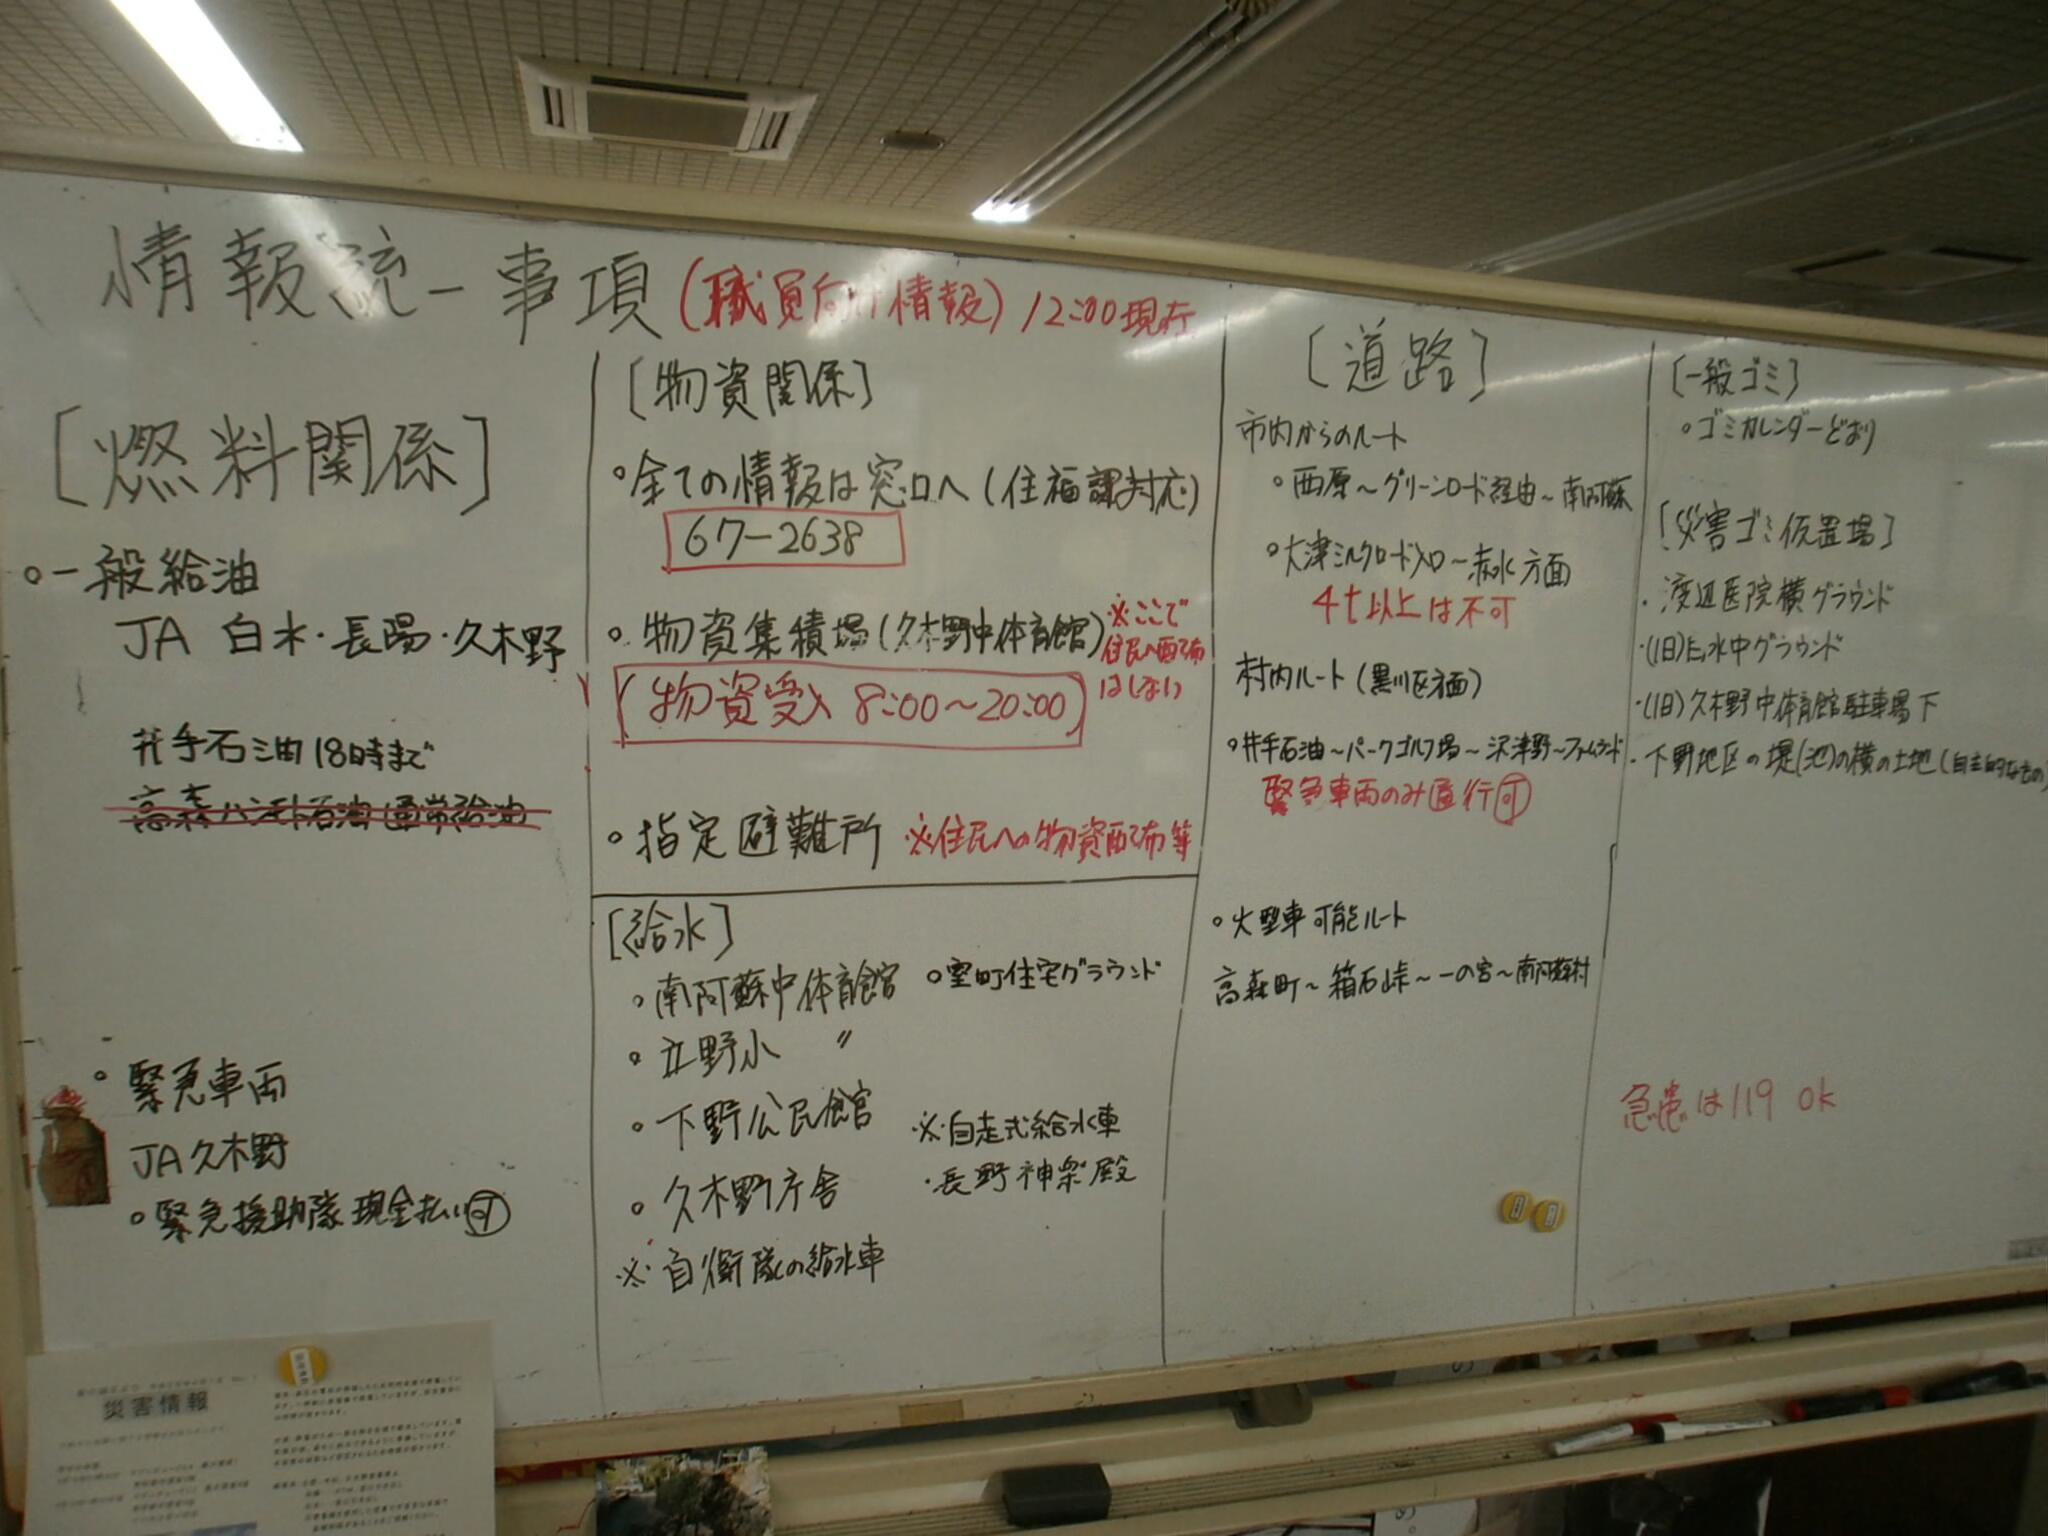 情報統一事項(職員向け情報) 12:00現在
[燃料関係]
○一般給油
JA 白水・長陽・久木野
井手石油18時まで
高森ハシモト石油 通常給油
○緊急車両
JA久木野
○緊急援助隊 現金払い可
[物資関係]
○全ての情報は窓口へ(住福課対応)
67-2638
○物資集積場(久木野中体育館)
※ここで
住民へ配布
はしない
(物資受入 8:00〜20:00)
○指定避難所 ※住民への物資配布等
[給水]
○南阿蘇中体育館 ○室町住宅グラウンド
○立野小 〃
○下野公民館
○久木野庁舎
※自衛隊の給水車
※自走式給水車
・長野神楽殿
[道路]
市内からのルート
○西原〜グリーンロード経由〜南阿蘇
○大津ミルクロード入口〜赤水方面
4t以上は不可
村内ルート(黒川区方面)
○井手石油〜パークゴルフ場〜沢津野〜ファームランド
緊急車両のみ通行可
○大型車可能ルート
高森町〜箱石峠〜一の宮〜南阿蘇村
[一般ゴミ]
○ゴミカレンダーどおり
[災害ゴミ仮置場]
・渡辺医院横グラウンド
・(旧)白水中グラウンド
・(旧)久木野中体育館駐車場下
・下野地区の堤(池)の横の土地(自主的なもの)
急患は119 OK
災害情報